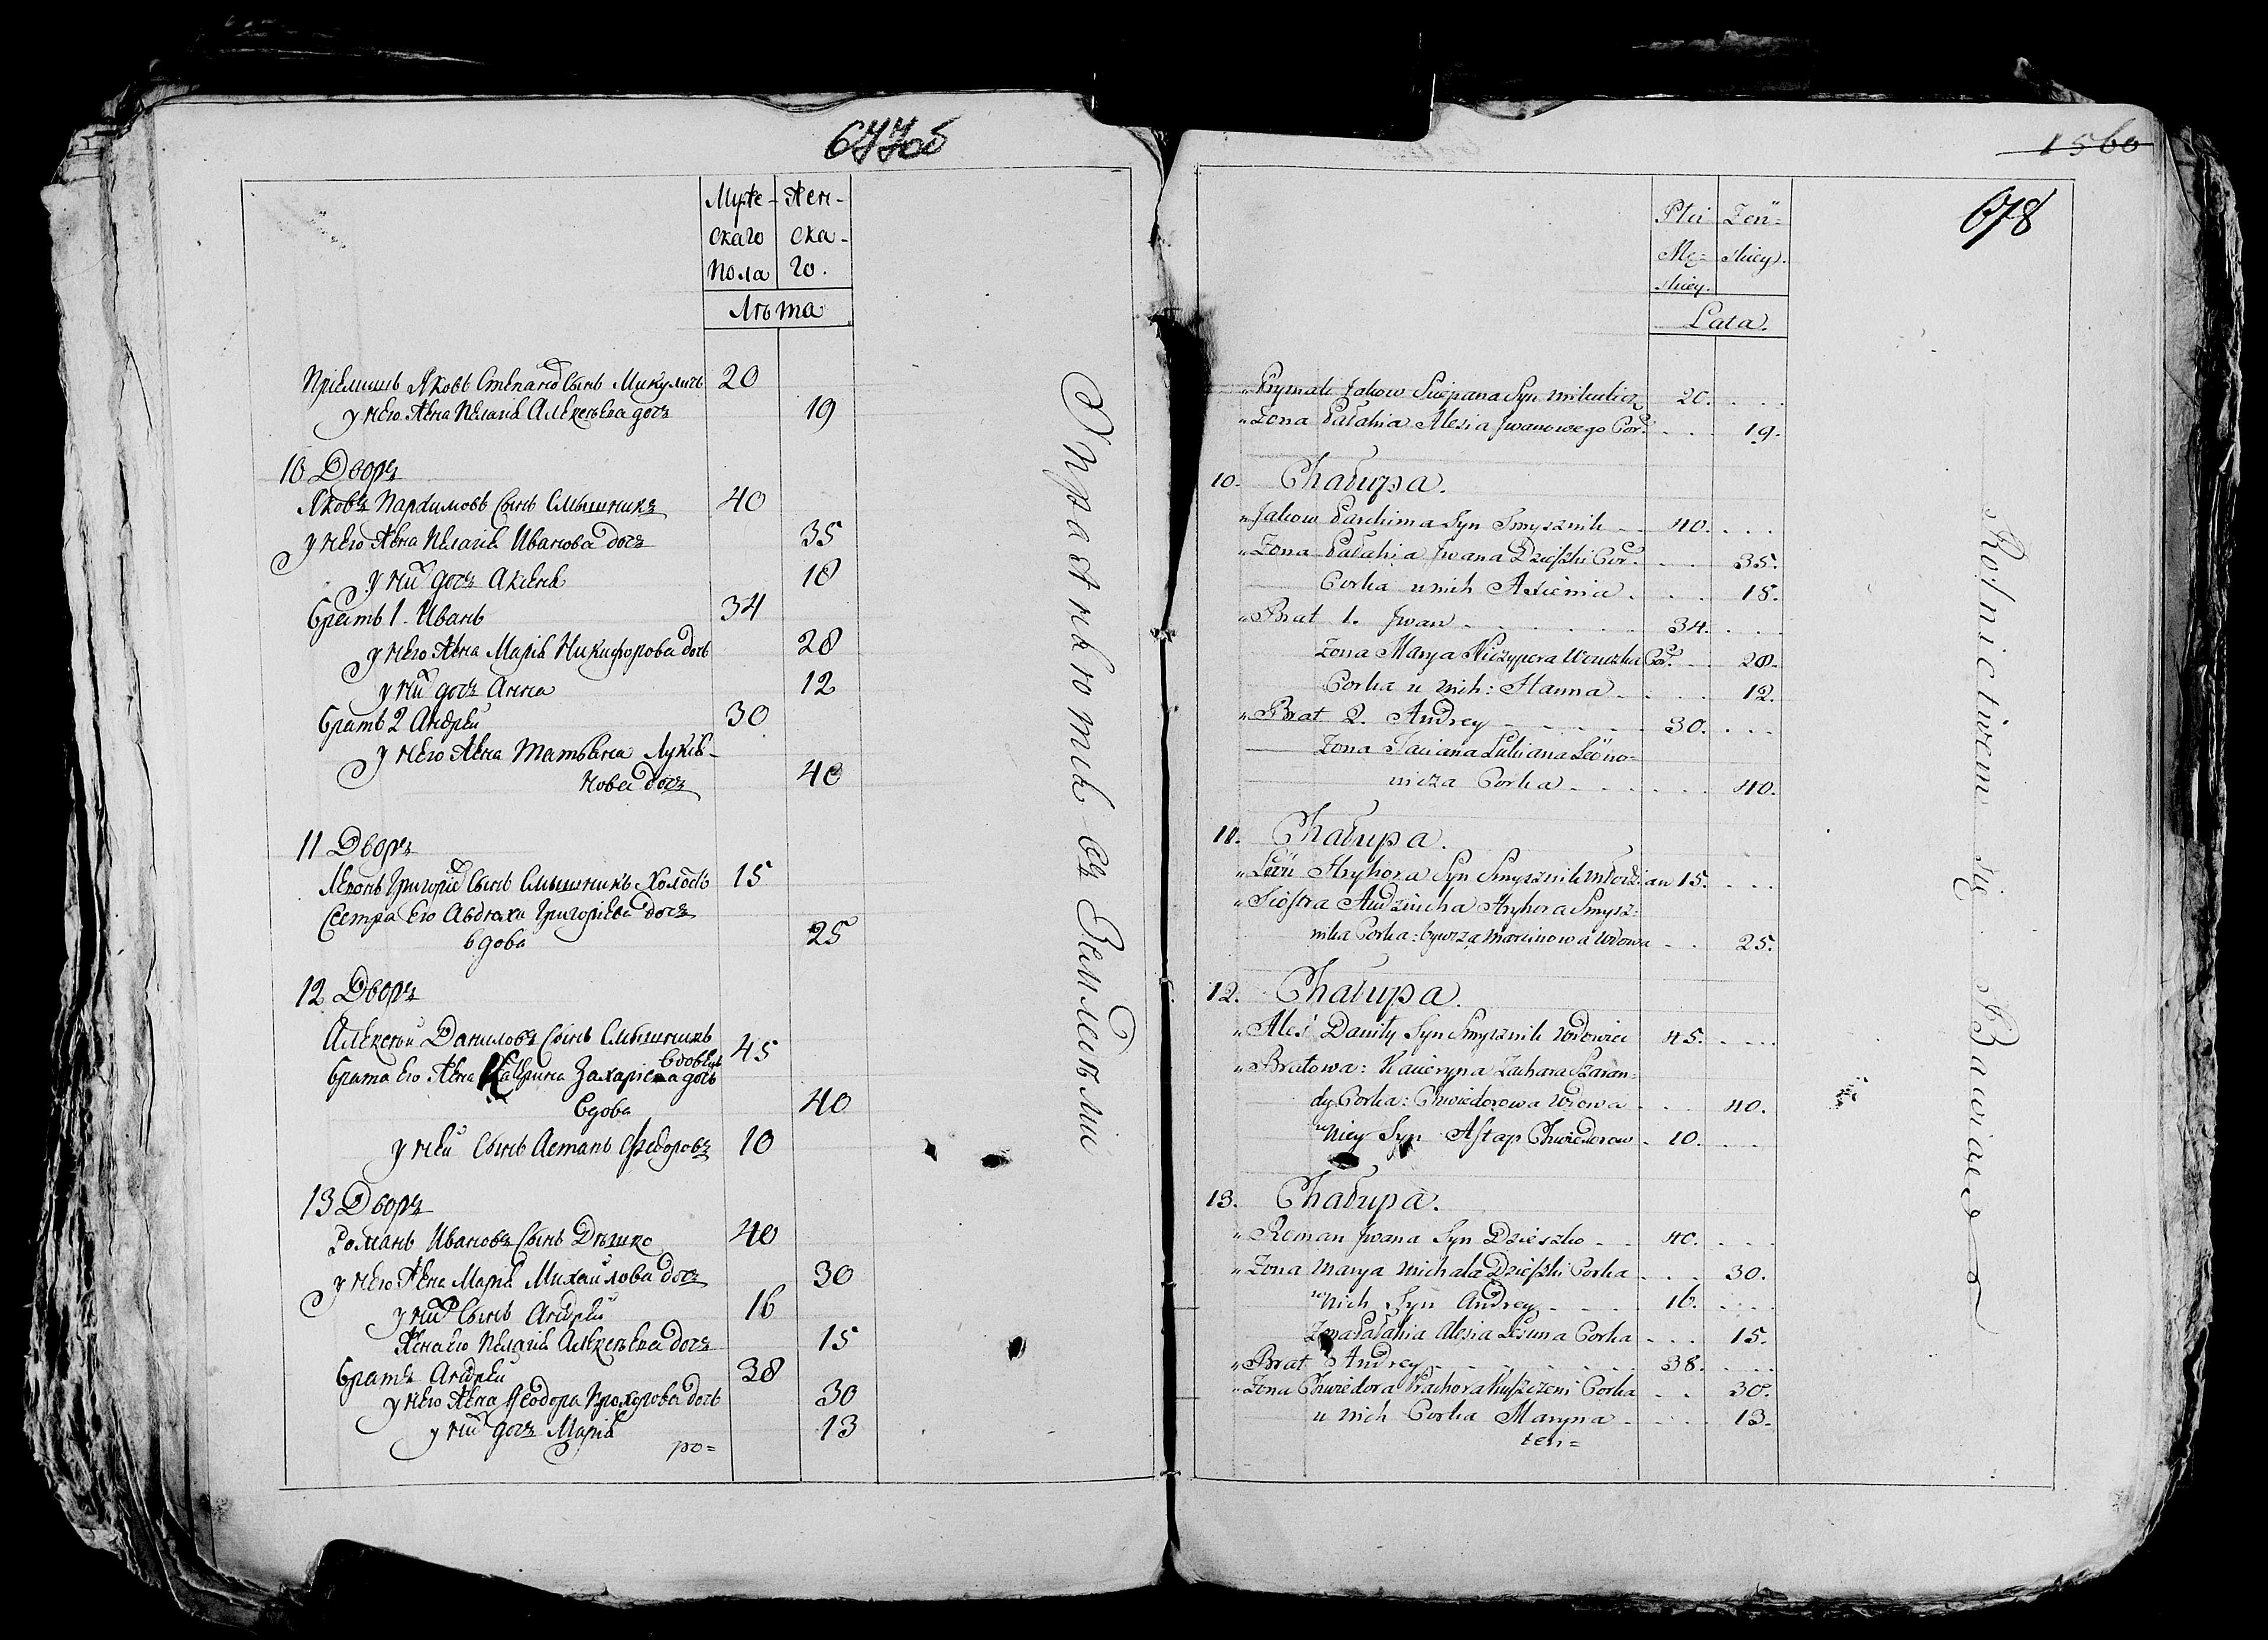 677об
Муже- Жен-
скаго ска-
пола го.
Лѣта
Пріемышъ Яковъ Степано Сынъ Микуличъ 20
у него Жена Пелагія Алексѣева дочь 19
10 Дворъ
Яковъ Пархимовъ Сынъ Смышникъ 40
у него Жена Пелагія Иванова дочь 35
у ни дочь Аксенія 18
братъ 1. Иванъ 34
у него Жена Марія Никифорова дочь 28
у ни дочь Анна 12
братъ 2 Андрей 30
у него Жена Татьяна Лукія-
нова дочь 40
11 Дворъ
Леонъ Григоріе Сынъ Смышникъ Холостъ 15
Сестра его Авдюха Григоріева дочь
вдова 25
12 Дворъ
Алексѣй Даниловъ Сынъ Смышникъ
вдовецъ 45
брата его Жена Катерина Захаріева дочь
вдова 40
у ней Сынъ Астапъ Федоровъ 10
13 Дворъ
Романъ Ивановъ Сынъ Дѣшко 40
у него Жена Марія Михайлова дочь 30
у них Сынъ Андрей 16
Жена его Пелагія Алексѣева дочь 15
братъ Андрей 38
у него Жена Феодора Прохорова дочь 30
у ни дочь Марія 13
ро=
Упражнѣютъя въ Земледѣліи
1560
678
Płci Żeń=
Mę= skiey.
skiey.
Lata.
„Prymak Jakow Sciepana Syn Mikulicz 20. . . .
„Zona Pałahia Alesia Jwanowego Cor: . . . 19.
10. Chałupa.
„Jakow Parchima Syn Smysznik - - 40. . . .
„Zona Pałahia Jwana Dzieszki Cor. . . . 35.
Corka u nich Axienia . . . . 18.
„Brat 1. Jwan . . . . . 34. . . .
Zona Marya Niczypora Woruszka Cor. . . 28.
Corka u Nich: Hanna . . . . 12.
„Brat 2. Andrey . . . . . 30. . . .
Zona Taciana Lukiana Leono=
wicza Corka . . . . . 40.
11. Chałupa.
„Leon Hryhora Syn Smysznik Młodzian 15. . . .
„Siostra Audziucha Hryhora Smysz=
nika Corka: bywszą Marcinowa Wdowa . . 25.
12. Chałupa.
„Aleś Daniły Syn Smysznik Wdowiec 45. . . .
„Bratowa: Kacieryna Zachara Szaran=
dy Corka: Chwiedorowa Wdowa . . . 40.
u Niey Syn Astap Chwiedorow . 10. . . .
13. Chałupa.
„Roman Jwana Syn Dzieszko . . 40. . . .
„Zona Marya Michała Dzieszki Corka . . . 30.
u Nich Syn Andrey . . . 16. . . .
Zona Pałahia Alesia Lisuna Corka . . . 15.
„Brat Andrey . . . . . 38. . . .
„Zona Chwiedora Prachora Corka . . 30.
u nich Corka Maryna . . . . 13.
ten=
Rolnictwem się Bawiące